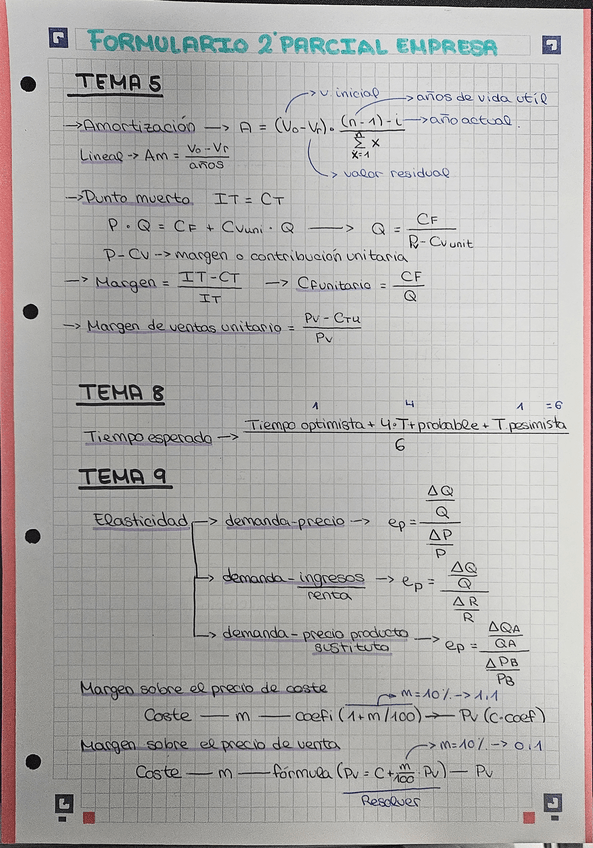 FORMULARIO 2º PARCIAL EMPRESA
TEMA 5
→ v. inicial
→ años de vida util
→ Amortización → A = (V₀ - Vr) · ((n - 1) - i) / (Σ x)
n
x=1
→ año actual.
Lineal → Am = (V₀ - Vr) / años
→ valor residual
→ Punto muerto IT = CT
P · Q = CF + CVuni · Q → Q = CF / (Pv - CVunit)
P - CV → margen o contribución unitaria
→ Margen = (IT - CT) / IT → CFunitario = CF / Q
→ Margen de ventas unitario = (Pv - CTu) / Pv
TEMA 8
1 4 1 = 6
Tiempo esperado → (Tiempo optimista + 4·T+probable + T pesimista) / 6
TEMA 9
Elasticidad → demanda-precio → ep = (ΔQ / Q) / (ΔP / P)
→ demanda-ingresos / renta → ep = (ΔQ / Q) / (ΔR / R)
→ demanda-precio producto sustituto → ep = (ΔQA / QA) / (ΔPB / PB)
Margen sobre el precio de coste
→ m = 10% → 1,1
Coste — m — coefi (1 + m/100) → Pv (c·coef)
Margen sobre el precio de venta
→ m = 10% → 0,1
Coste — m — fórmula (Pv = C + m/100 · Pv) — Pv
Resolver